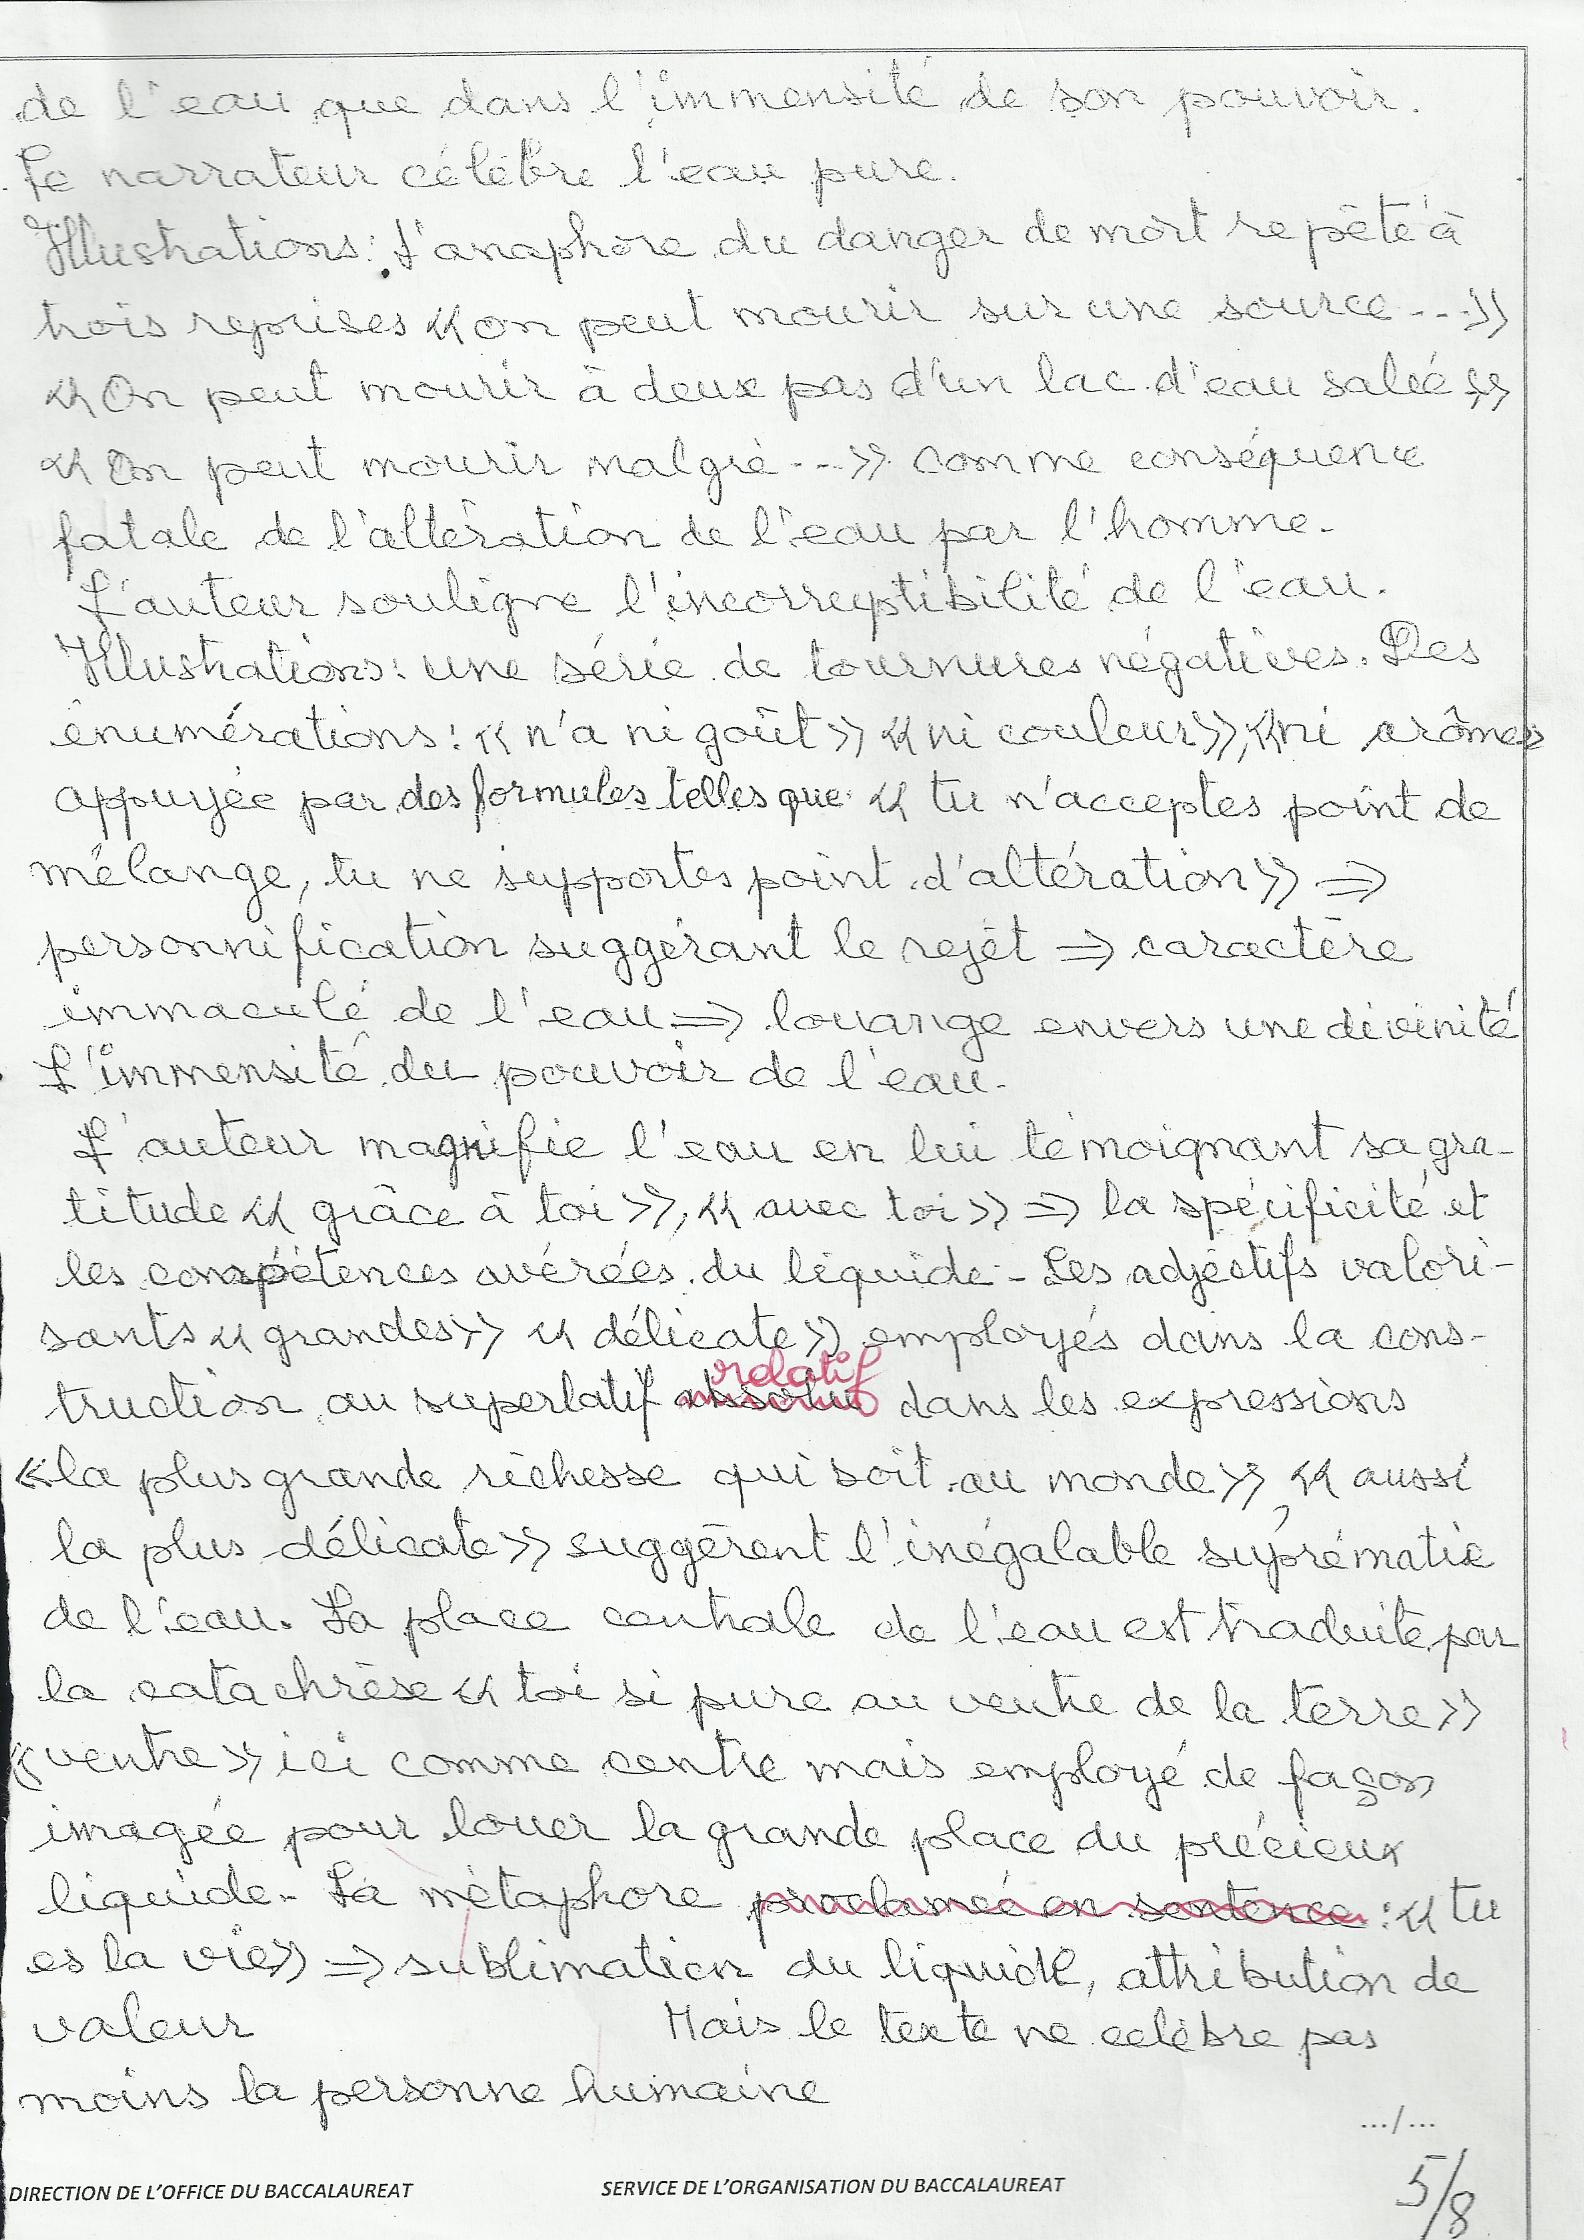 de l'eau que dans l'immensité de son pouvoir.
Le narrateur célèbre l'eau pure.
Illustrations : L'anaphore du danger de mort repété à
trois reprises « on peut mourir sur une source ---»
« On peut mourir à deux pas d'un lac d'eau salée »
« On peut mourir malgré ---» comme conséquence
fatale de l'altération de l'eau par l'homme.
L'auteur souligne l'incorruptibilité de l'eau.
Illustrations : une série de tournures négatives. Des
énumérations : « n'a ni goût » « ni couleur », « ni arôme »
appuyée par des formules telles que « tu n'acceptes point de
mélange, tu ne supportes point d'altération » ⇒
personnification suggérant le rejet ⇒ caractère
immaculé de l'eau ⇒ louange envers une divinité
L'immensité du pouvoir de l'eau.
L'auteur magnifie l'eau en lui témoignant sa gra-
titude « grâce à toi », « avec toi » ⇒ la spécificité et
les compétences avérées du liquide - Les adjectifs valori-
sants « grandes » « délicate » employés dans la cons-
relatif
truction au superlatif absolu dans les expressions
« la plus grande richesse qui soit au monde », « aussi
la plus délicate » suggèrent l'inégalable suprématie
de l'eau. La place centrale de l'eau est traduite par
la catachrèse « toi si pure au ventre de la terre »
« ventre » ici comme centre mais employé de façon
imagée pour louer la grande place du précieux
liquide - La métaphore proclamée en sentence : « tu
es la vie » ⇒ sublimation du liquide, attribution de
valeur Mais le texte ne célèbre pas
moins la personne humaine
.../...
DIRECTION DE L'OFFICE DU BACCALAUREAT SERVICE DE L'ORGANISATION DU BACCALAUREAT
5/8